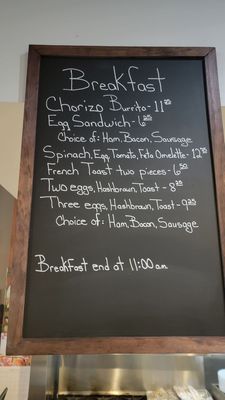 Breakfast
Chorizo Burrito - 11
Egg Sandwich - 6
Choice of: Ham, Bacon, Sausage
Spinach, Egg, Tomato, Feta Omelette - 12
French Toast two pieces - 6
Two eggs, Hashbrown, Toast - 8
Three eggs, Hashbrown, Toast - 9
Choice of: Ham, Bacon, Sausage
Breakfast end at 11:00 am